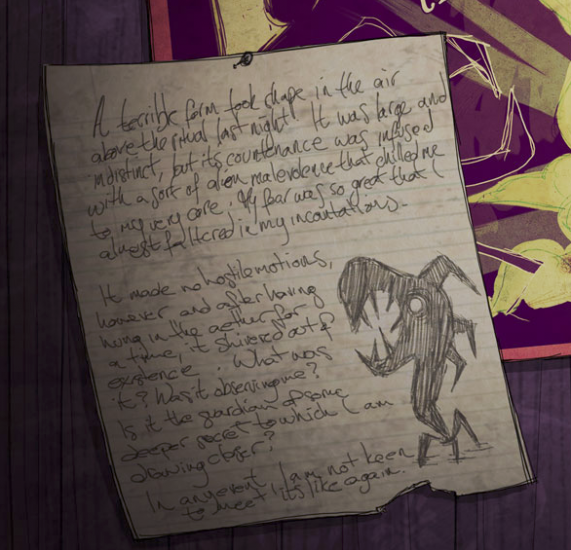 A terrible form took shape in the air
above the ritual last night. It was large and
indistinct, but its countenance was infused
with a sort of alien malevolence that chilled me
to my very core. My fear was so great that I
almost faltered in my incantations.
It made no hostile motions,
however and after having
hung in the aether for
a time, it shivered out of
existence. What was
it? Was it observing me?
Is it the guardian of some
deeper secret to which I am
drawing closer?
In any event, I am not keen
to meet its like again.